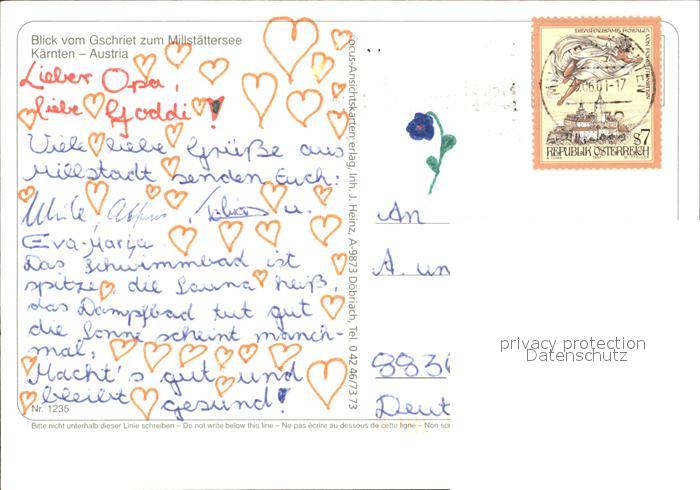 Blick vom Gschriet zum Millstättersee
Kärnten – Austria
Lieber Opa,
liebe Goddi!
Viele liebe Grüße aus
Millstadt senden Euch:
u.
Eva-Marija
Das Schwimmbad ist
spitze, die Sauna heiß,
das Dampfbad tut gut
die Sonne scheint manch-
mal,
Macht's gut und
bleibt gesund!
Nr. 1235
Bitte nicht unterhalb dieser Linie schreiben – Do not write below this line – Ne pas écrire au dessous de cette ligne – Non scr
ocus-Ansichtskartenverlag, Inh. J. Heinz, A-9873 Döbriach, Tel. 0 42 46/73 73
.06.01-17
S7
REPUBLIK ÖSTERREICH
1997
An
A. un
8836
Deut
privacy protection
Datenschutz